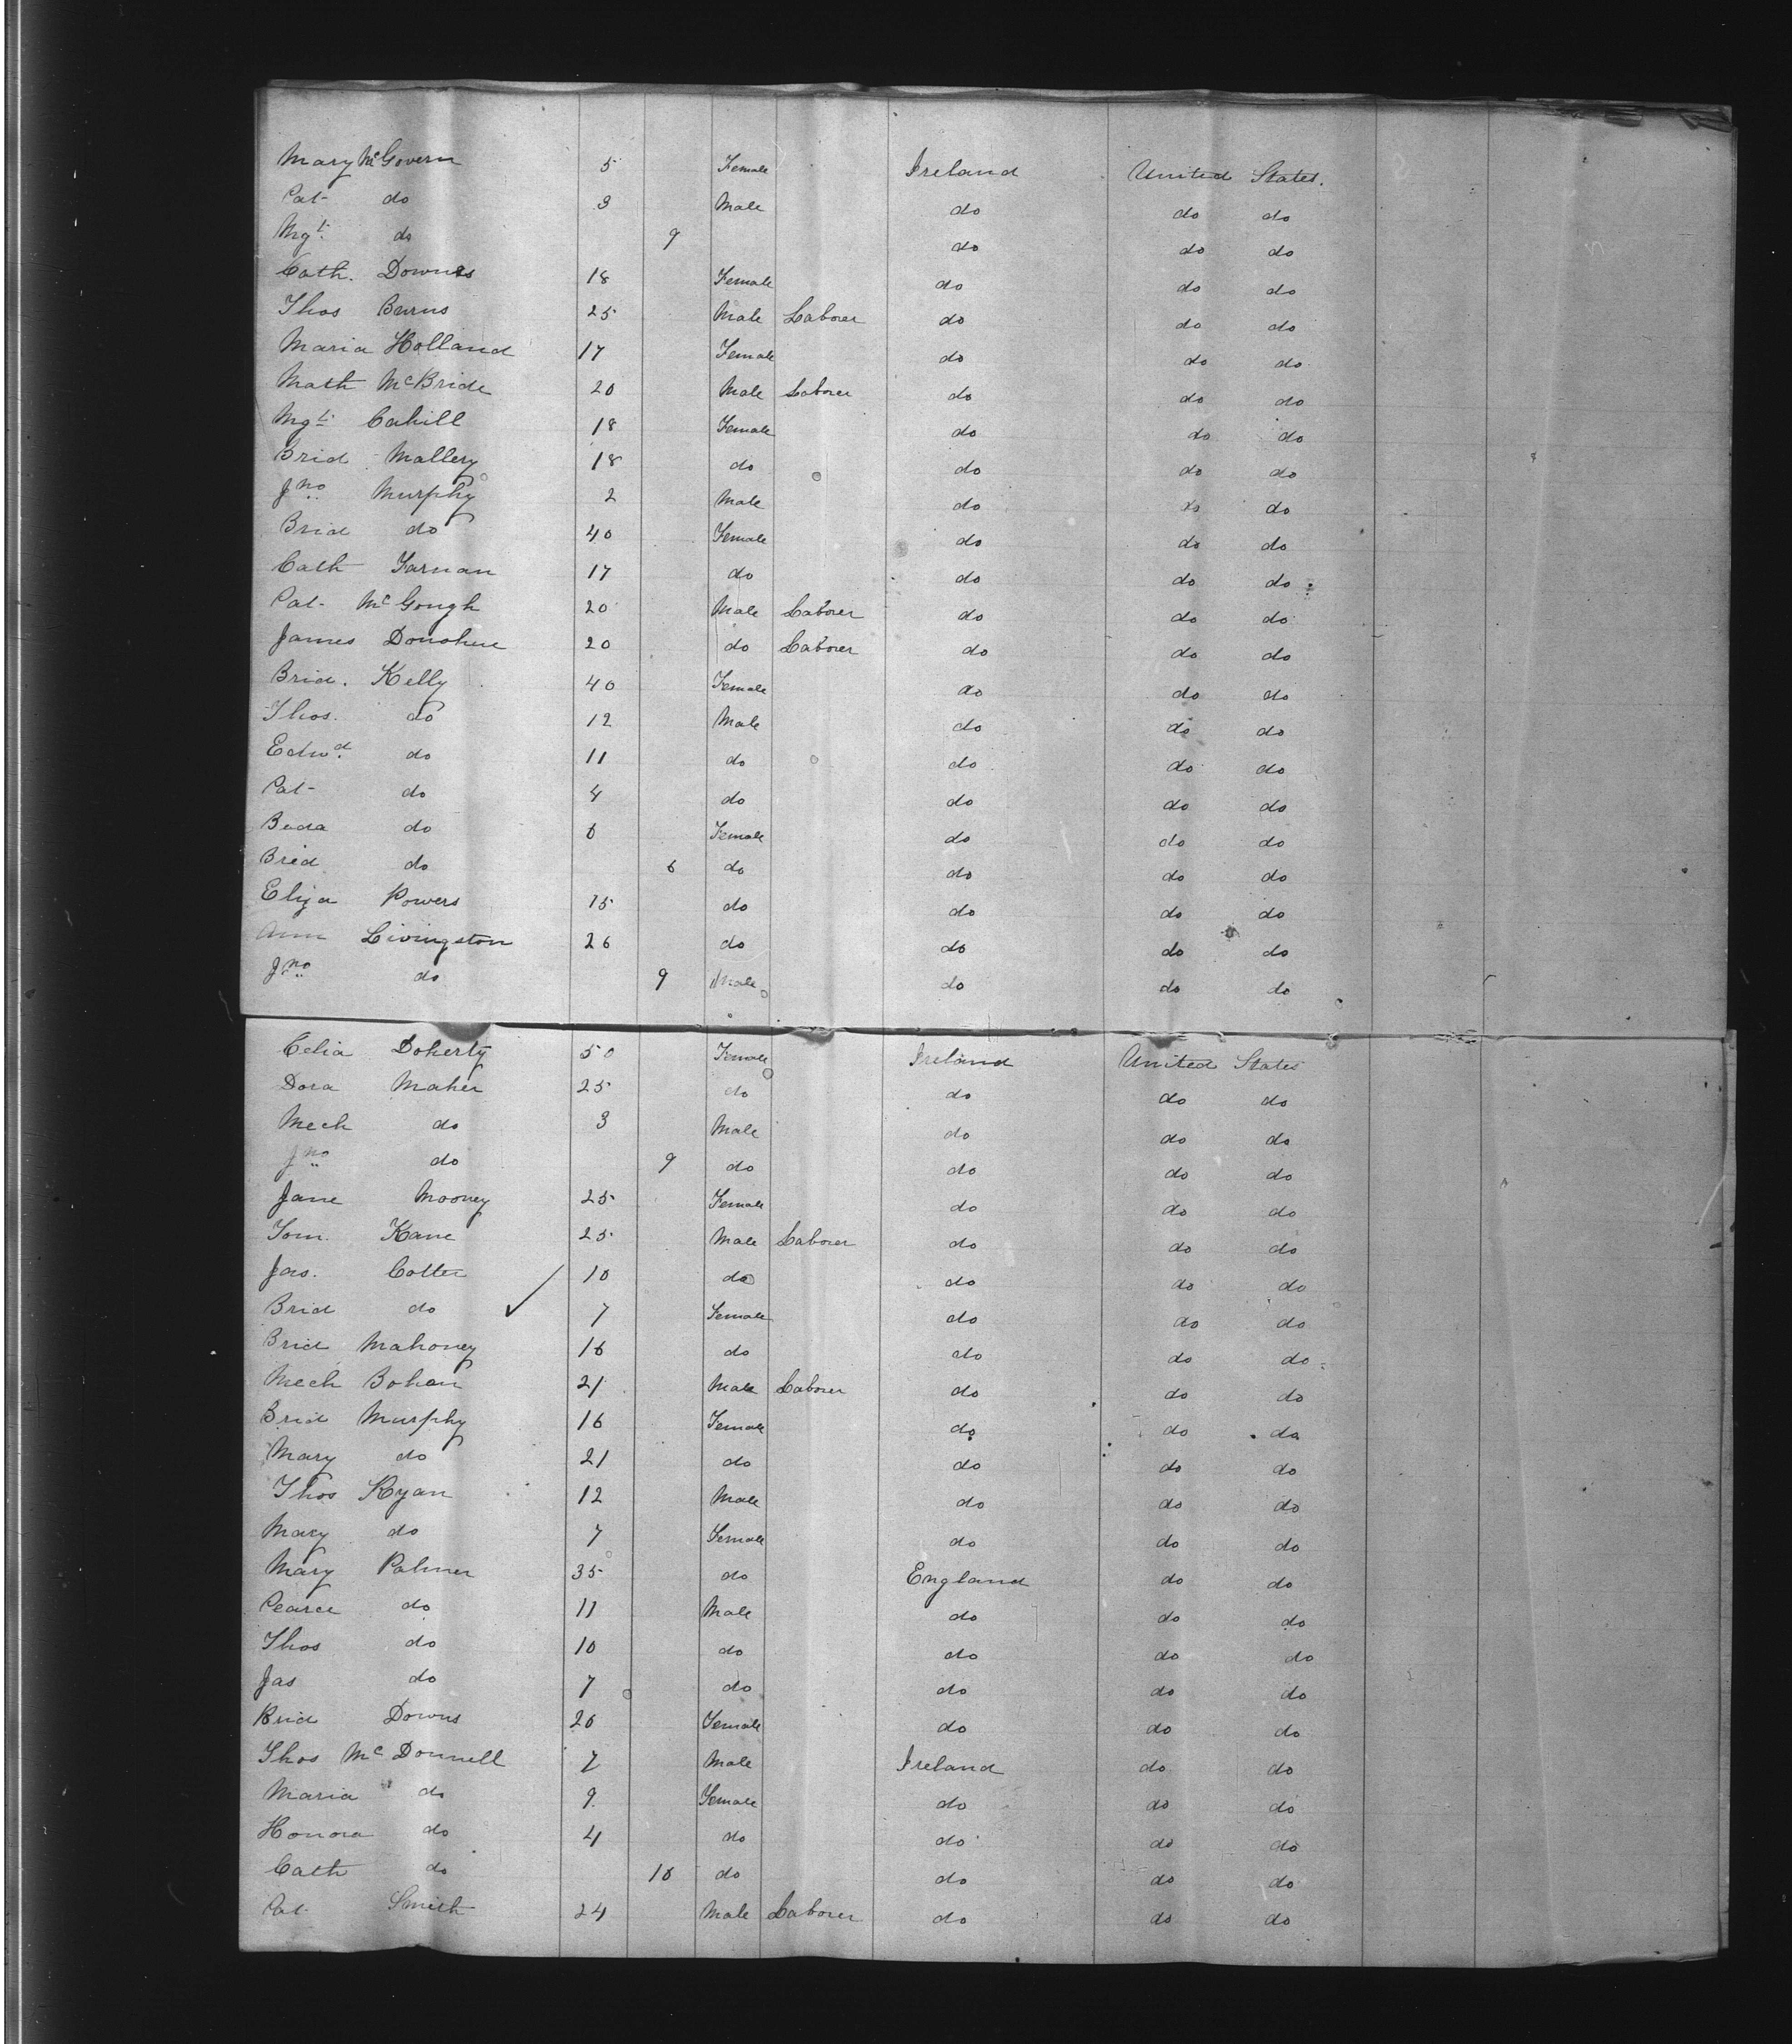 Mary McGovern 5 Female Ireland United States.
Pat- do 3 Male do do do
Mgt. do 9 do do do
Cath. Downes 18 Female do do do
Thos Burns 25 Male Laborer do do do
Maria Holland 17 Female do do do
Math McBride 20 Male Laborer do do do
Mgt. Cahill 18 Female do do do
Brid Mallery 18 do do do do
Jno Murphy 2 Male do do do
Brid do 40 Female do do do
Cath Farnan 17 do do do do
Pat- McGough 20 Male Laborer do do do
James Donohue 20 do Laborer do do do
Brid. Kelly 40 Female do do do
Thos. do 12 Male do do do
Edwd. do 11 do do do do
Pat- do 4 do do do do
Beda do 6 Female do do do
Brid do 6 do do do do
Eliza Powers 15 do do do do
Ann Livingston 26 do do do do
Jno do 9 Male do do do
Celia Doherty 50 Female Ireland United States
Dora Maher 25 do do do do
Mech do 3 Male do do do
Jno do 9 do do do do
Jane Mooney 25 Female do do do
Tom. Kane 25 Male Laborer do do do
Jas. Cotter 10 do do do do
Brid do 7 Female do do do
Brid Mahoney 16 do do do do
Mech Bohan 21 Male Laborer do do do
Brid Murphy 16 Female do do do
Mary do 21 do do do do
Thos Ryan 12 Male do do do
Mary do 7 Female do do do
Mary Palmer 35 do England do do
Pearce do 11 Male do do do
Thos do 10 do do do do
Jas do 7 do do do do
Brid Downs 20 Female do do do
Thos McDonnell 7 Male Ireland do do
Maria do 9 Female do do do
Honora do 4 do do do do
Cath do 10 do do do do
Pat- Smith 24 Male Laborer do do do